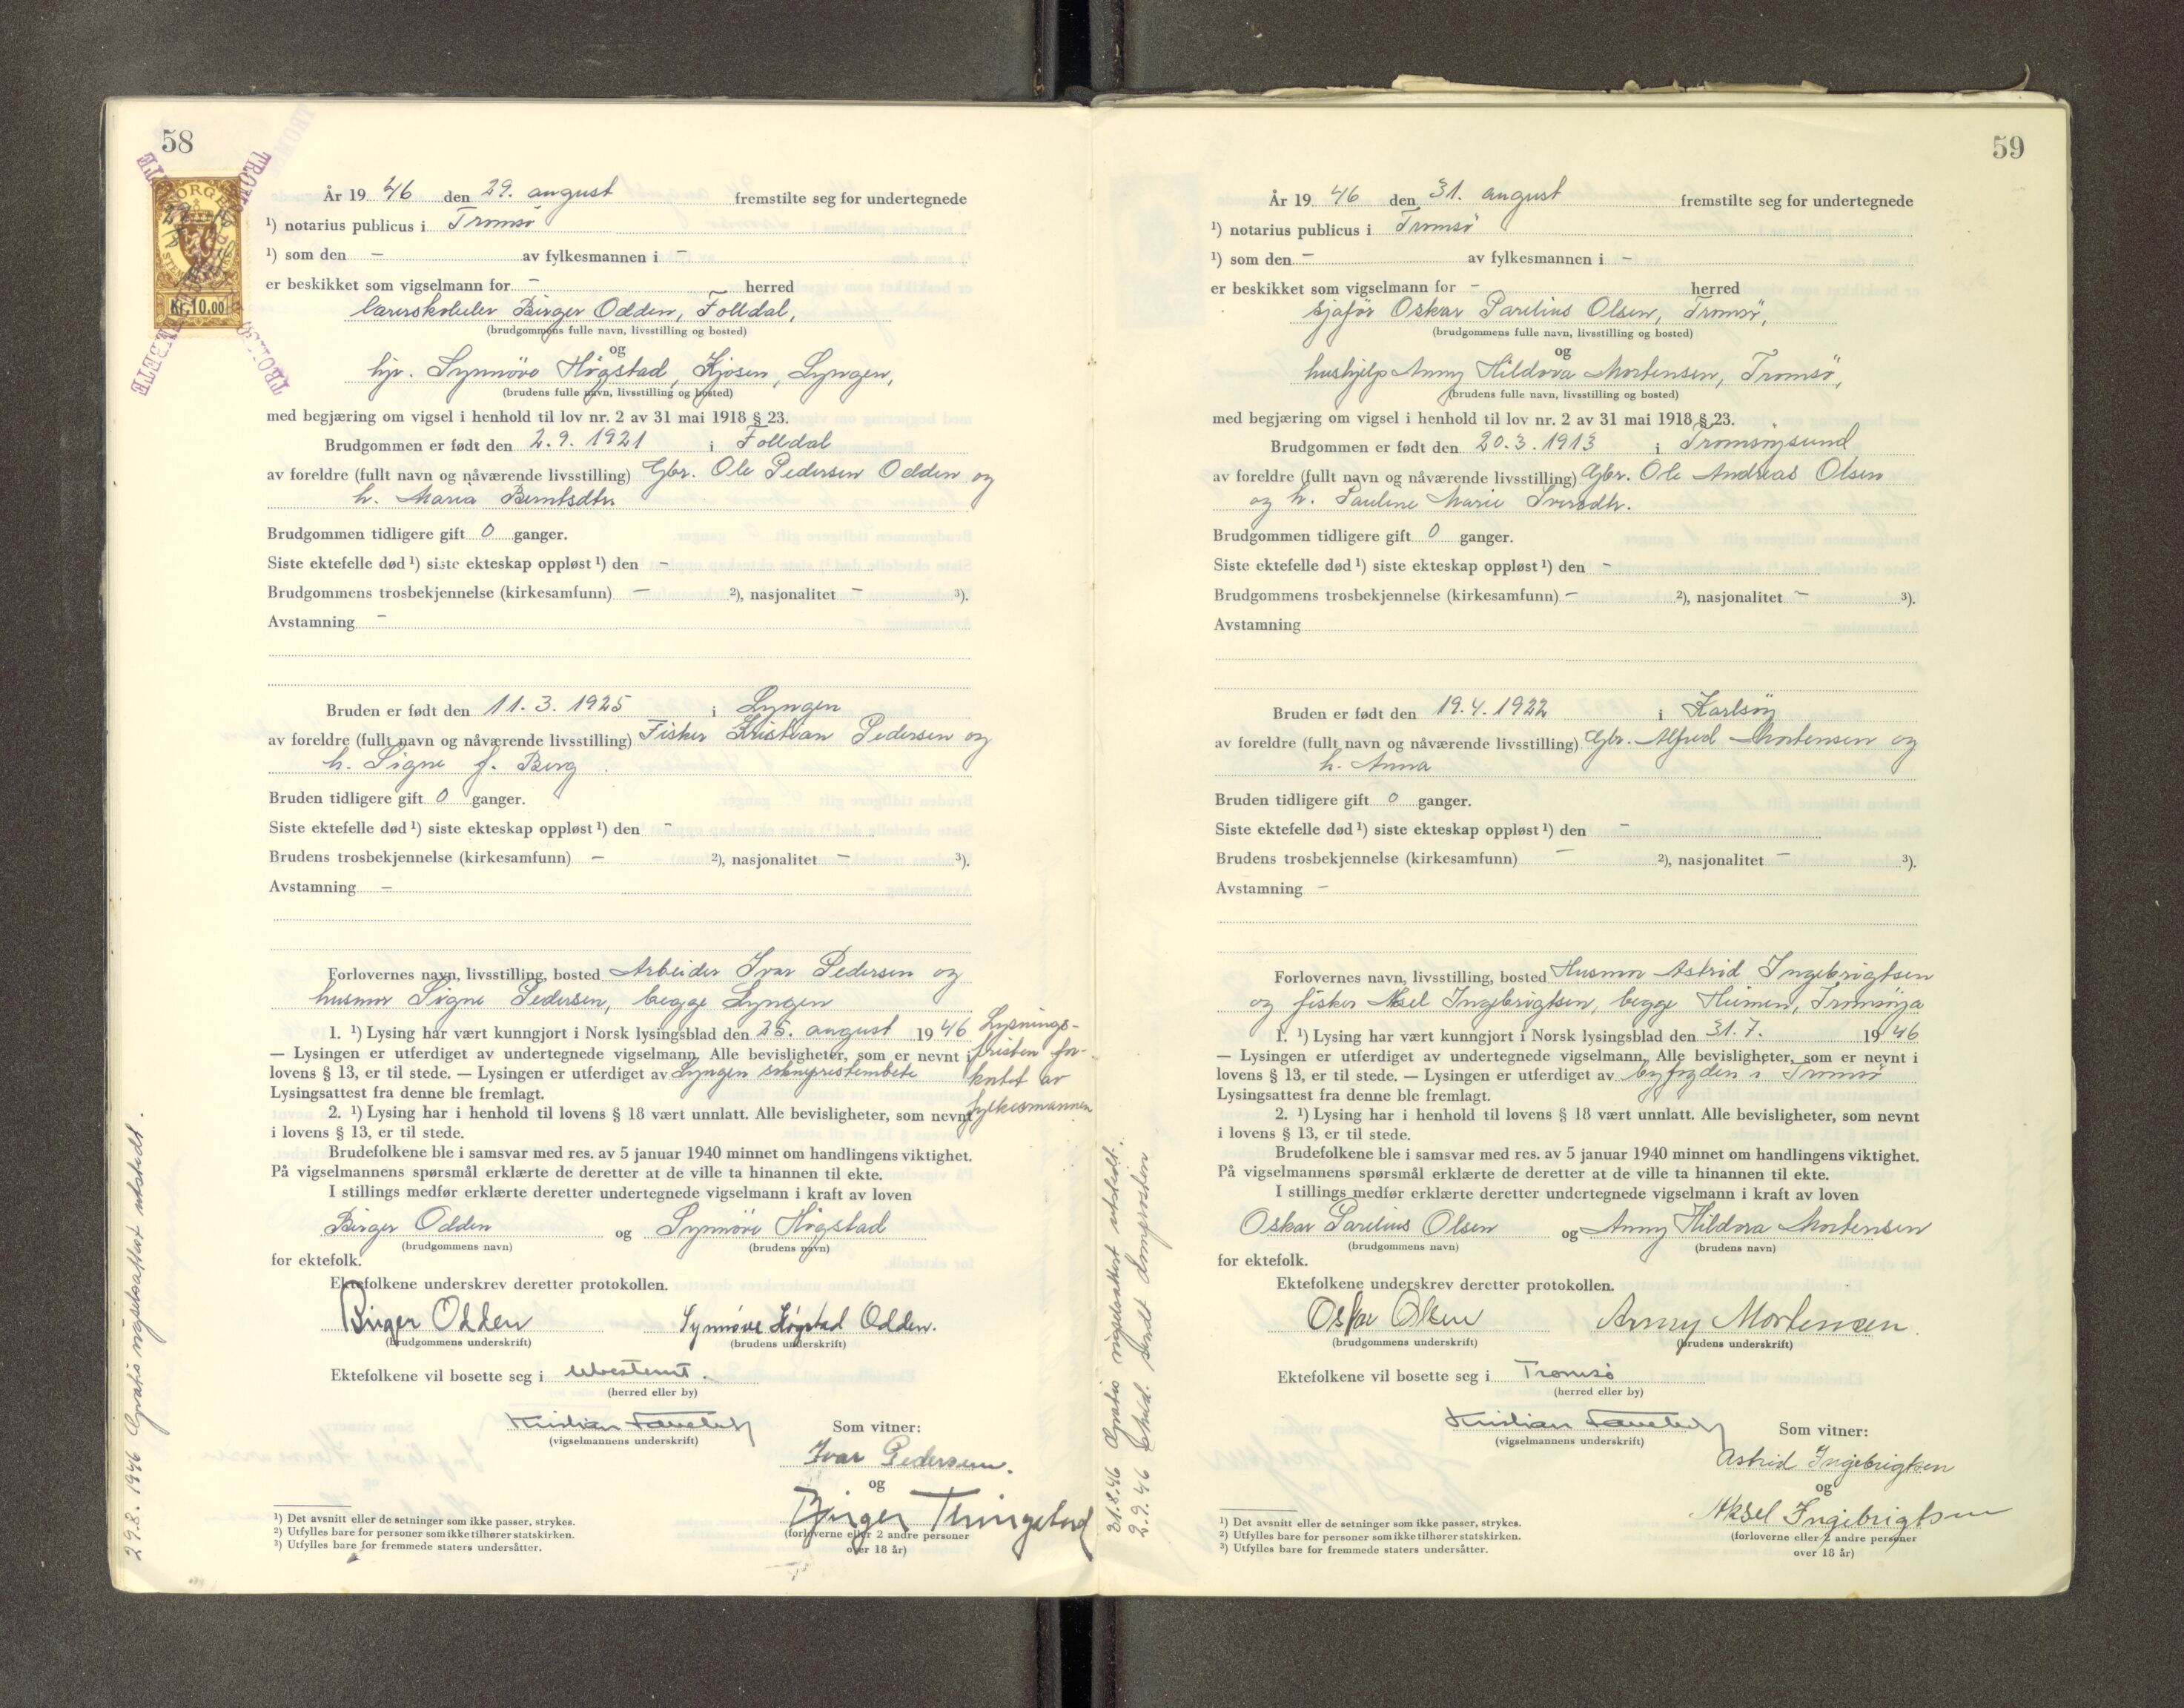 58
NORGE
Kr. 10.00
TROMSØ
År 19 46 den 29. august fremstilte seg for undertegnede
¹) notarius publicus i Tromsø
¹) som den – av fylkesmannen i –
er beskikket som vigselmann for – herred
lærerskoleelev Birger Odden, Folldal,
(brudgommens fulle navn, livsstilling og bosted)
og
hjv. Synnöve Högstad, Kjosen, Lyngen,
(brudens fulle navn, livsstilling og bosted)
med begjæring om vigsel i henhold til lov nr. 2 av 31 mai 1918 § 23.
Brudgommen er født den 2.9.1921 i Folldal
av foreldre (fullt navn og nåværende livsstilling) Gbr. Ole Pedersen Odden og
h. Maria Berntsdtr.
Brudgommen tidligere gift 0 ganger.
Siste ektefelle død ¹) siste ekteskap oppløst ¹) den –
Brudgommens trosbekjennelse (kirkesamfunn) – ²), nasjonalitet – ³).
Avstamning –
Bruden er født den 11.3.1925 i Lyngen
av foreldre (fullt navn og nåværende livsstilling) Fisker Kristian Pedersen og
h. Signe f. Berg.
Bruden tidligere gift 0 ganger.
Siste ektefelle død ¹) siste ekteskap oppløst ¹) den –
Brudens trosbekjennelse (kirkesamfunn) – ²), nasjonalitet – ³).
Avstamning –
Forlovernes navn, livsstilling, bosted Arbeider Ivar Pedersen og
husmor Signe Pedersen, begge Lyngen
1. ¹) Lysing har vært kunngjort i Norsk lysingsblad den 25. august 19 46 Lysnings-
— Lysingen er utferdiget av undertegnede vigselmann. Alle bevisligheter, som er nevnt i fristen for-
lovens § 13, er til stede. — Lysingen er utferdiget av Lyngen sokneprestembete kortet av
Lysingsattest fra denne ble fremlagt. fylkesmannen
2. ¹) Lysing har i henhold til lovens § 18 vært unnlatt. Alle bevisligheter, som nevnt
i lovens § 13, er til stede.
Brudefolkene ble i samsvar med res. av 5 januar 1940 minnet om handlingens viktighet.
På vigselmannens spørsmål erklærte de deretter at de ville ta hinannen til ekte.
I stillings medfør erklærte deretter undertegnede vigselmann i kraft av loven
Birger Odden og Synnöve Högstad
(brudgommens navn) (brudens navn)
for ektefolk.
Ektefolkene underskrev deretter protokollen.
Birger Odden Synnøve Høgstad Odden.
(brudgommens underskrift) (brudens underskrift)
Ektefolkene vil bosette seg i ubestemt.
(herred eller by)
Kristian
(vigselmannens underskrift)
Som vitner:
Ivar Pedersen.
og
Birger
(forloverne eller 2 andre personer
over 18 år)
¹) Det avsnitt eller de setninger som ikke passer, strykes.
²) Utfylles bare for personer som ikke tilhører statskirken.
³) Utfylles bare for fremmede staters undersåtter.
29.8.1946 Gratis vigselsattest utstedt.
59
År 19 46 den 31. august fremstilte seg for undertegnede
¹) notarius publicus i Tromsø
¹) som den – av fylkesmannen i –
er beskikket som vigselmann for – herred
sjåför Oskar Parelius Olsen, Tromsö,
(brudgommens fulle navn, livsstilling og bosted)
og
hushjelp Anny Hildora Mortensen, Tromsö,
(brudens fulle navn, livsstilling og bosted)
med begjæring om vigsel i henhold til lov nr. 2 av 31 mai 1918 § 23.
Brudgommen er født den 20.3.1913 i Tromsöysund
av foreldre (fullt navn og nåværende livsstilling) Gbr. Ole Andreas Olsen
og h. Pauline Marie Iversdtr.
Brudgommen tidligere gift 0 ganger.
Siste ektefelle død ¹) siste ekteskap oppløst ¹) den –
Brudgommens trosbekjennelse (kirkesamfunn) – ²), nasjonalitet – ³).
Avstamning
Bruden er født den 19.4.1922 i Karlsöy
av foreldre (fullt navn og nåværende livsstilling) Gbr. Alfred Mortensen og
h. Anna
Bruden tidligere gift 0 ganger.
Siste ektefelle død ¹) siste ekteskap oppløst ¹) den –
Brudens trosbekjennelse (kirkesamfunn) – ²), nasjonalitet – ³).
Avstamning –
Forlovernes navn, livsstilling, bosted Husmor Astrid Ingebrigtsen
og fisker Aksel Ingebrigtsen, begge Tromsöya
1. ¹) Lysing har vært kunngjort i Norsk lysingsblad den 31.7. 19 46
— Lysingen er utferdiget av undertegnede vigselmann. Alle bevisligheter, som er nevnt i
lovens § 13, er til stede. — Lysingen er utferdiget av byfogden i Tromsö
Lysingsattest fra denne ble fremlagt.
2. ¹) Lysing har i henhold til lovens § 18 vært unnlatt. Alle bevisligheter, som nevnt
i lovens § 13, er til stede.
Brudefolkene ble i samsvar med res. av 5 januar 1940 minnet om handlingens viktighet.
På vigselmannens spørsmål erklærte de deretter at de ville ta hinannen til ekte.
I stillings medfør erklærte deretter undertegnede vigselmann i kraft av loven
Oskar Parelius Olsen og Anny Hildora Mortensen
(brudgommens navn) (brudens navn)
for ektefolk.
Ektefolkene underskrev deretter protokollen.
Oskar Olsen Anny Mortensen.
(brudgommens underskrift) (brudens underskrift)
Ektefolkene vil bosette seg i Tromsø
(herred eller by)
Kristian
(vigselmannens underskrift)
Som vitner:
Astrid Ingebrigtsen
og
Aksel Ingebrigtsen
(forloverne eller 2 andre personer
over 18 år)
¹) Det avsnitt eller de setninger som ikke passer, strykes.
²) Utfylles bare for personer som ikke tilhører statskirken.
³) Utfylles bare for fremmede staters undersåtter.
31.8.46 Gratis vigselsattest utstedt.
2.9.46 sendt domprosten